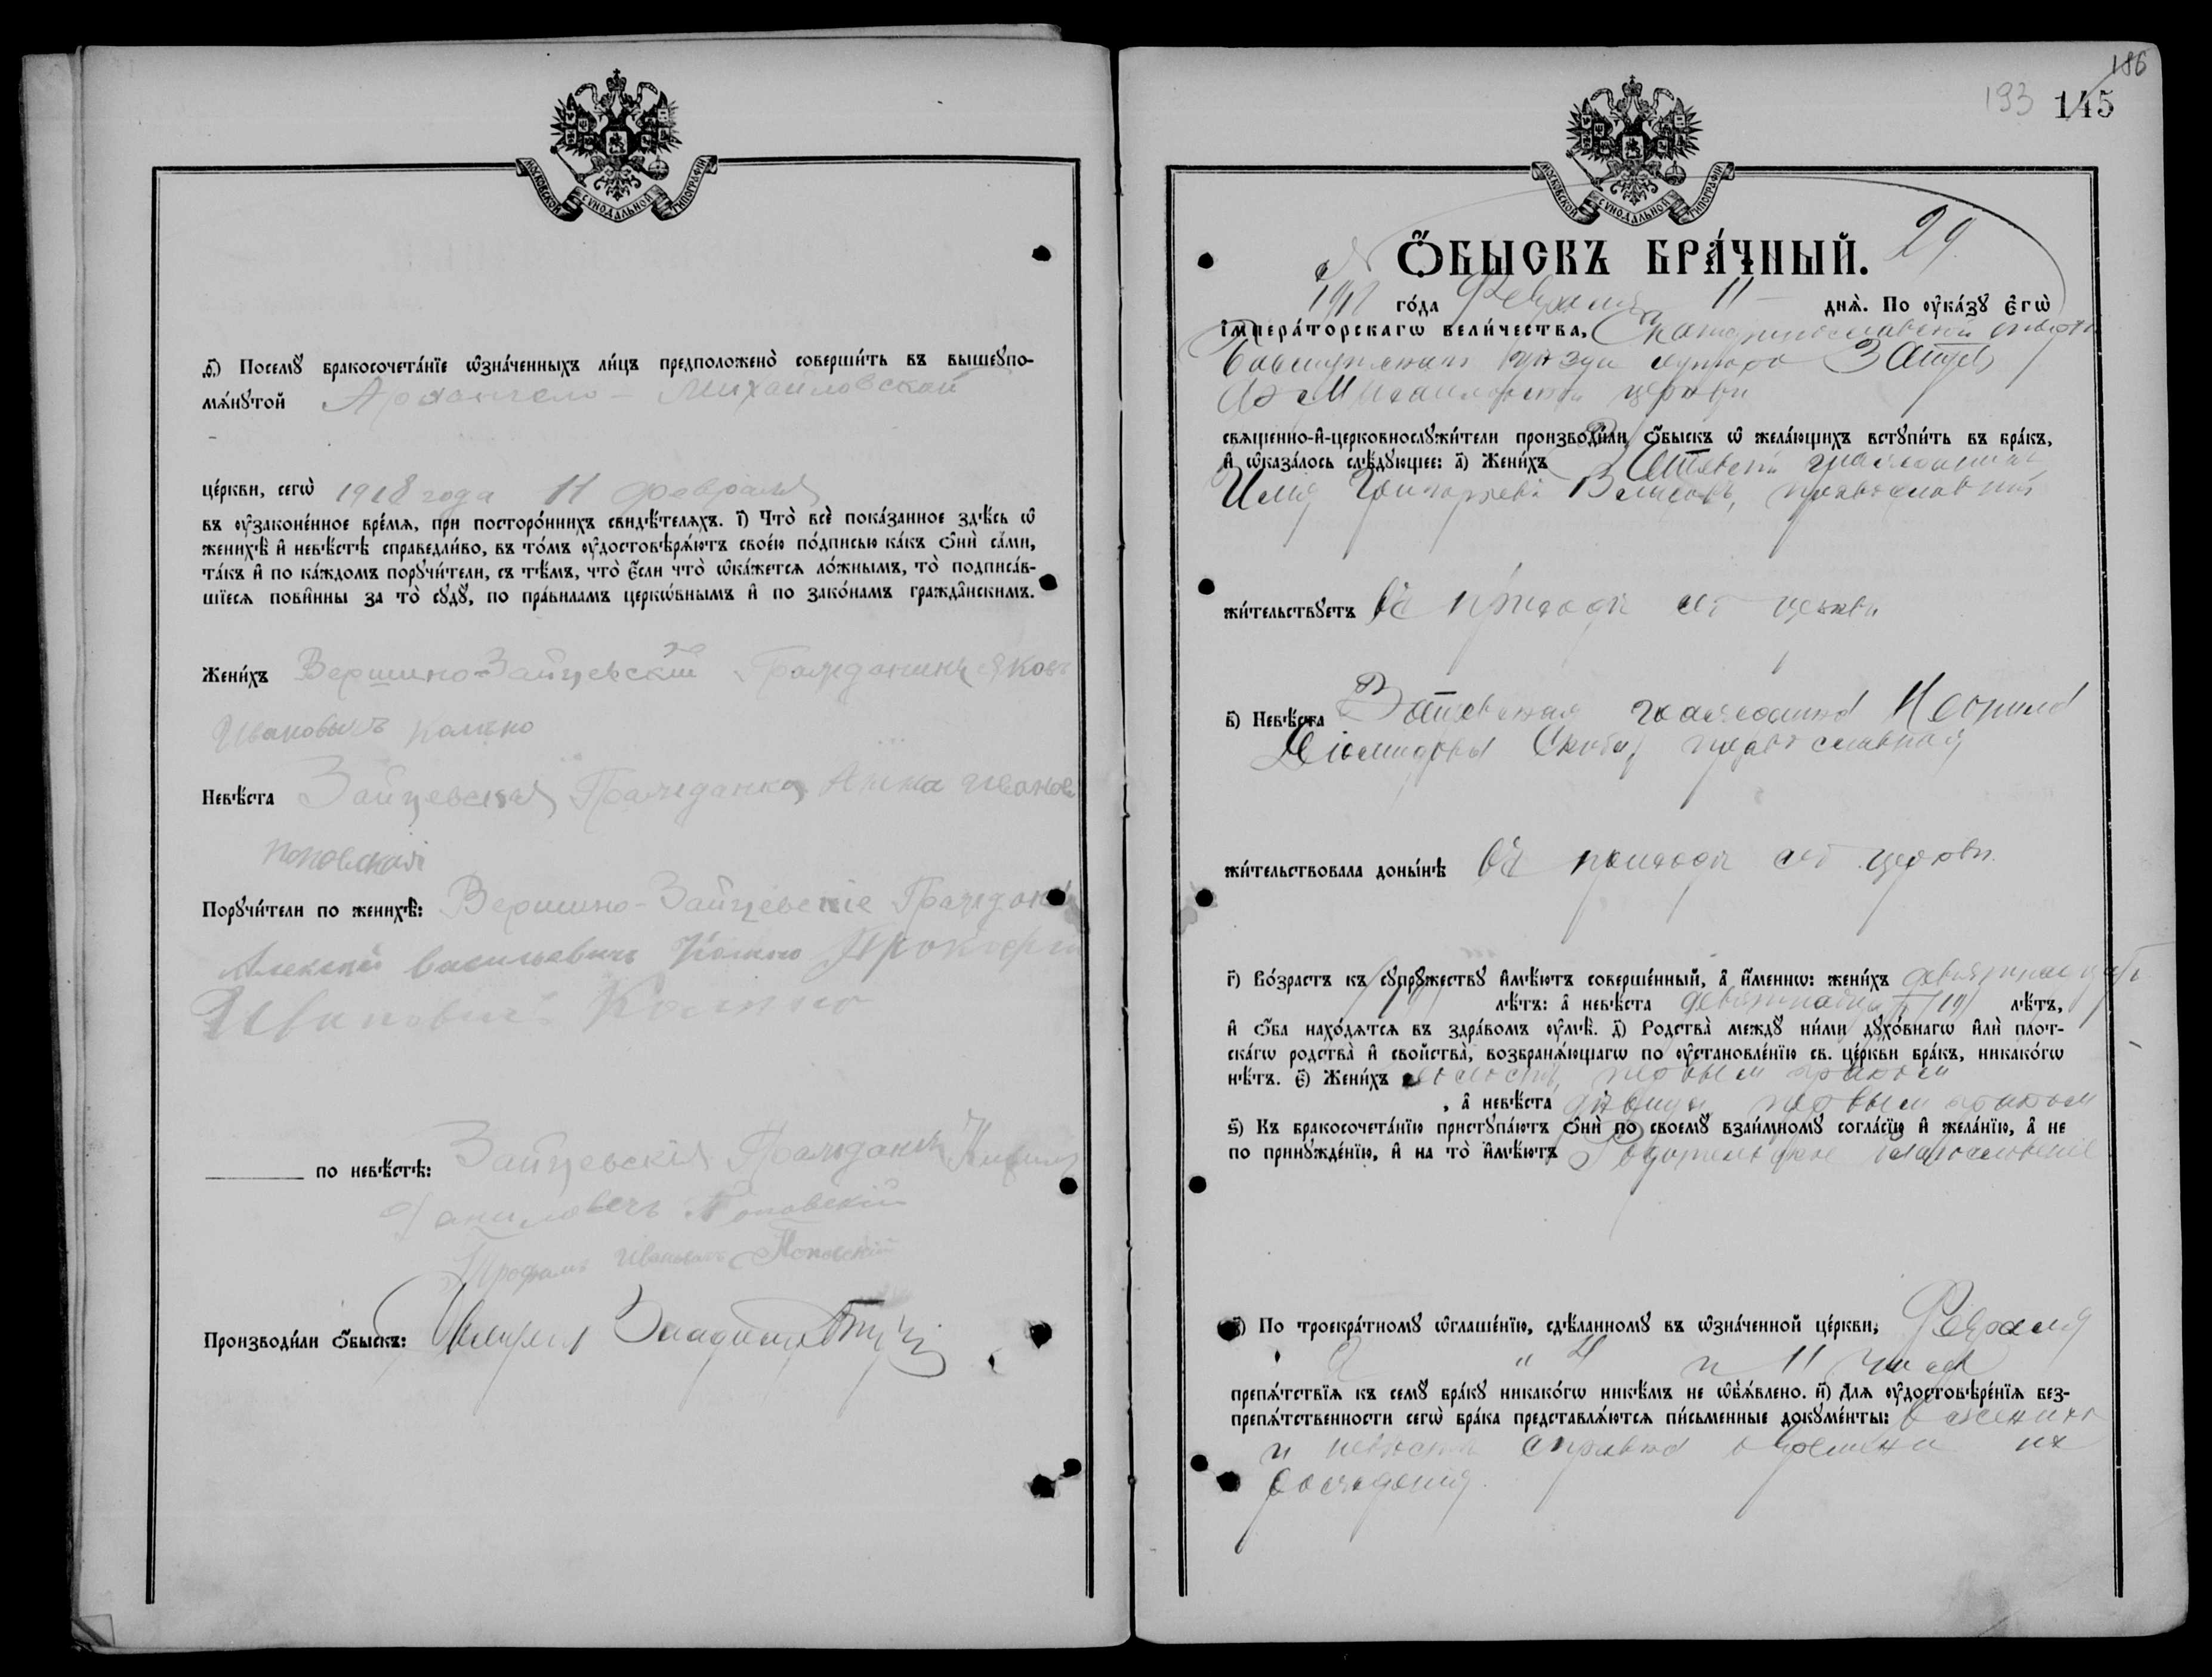 МОСКОВСКОЙ СѴНОДАЛЬНОЙ ТИПОГРАФІИ
ѳ҃) Посемꙋ̀ бракосочета́нїе ѡ҆зна́ченныхъ ли́цъ предположено̀ соверши́ть въ вышеꙋпо-
мѧ́нꙋтой Архангело-Михайловской
це́ркви, сегѡ̀ 1918 года 11 февраля
въ ᲂу҆зако́ненное вре́мѧ, при посторо́ннихъ свидѣ́телѧхъ. і҃) Что̀ всѐ пока́занное здѣ́сь ѡ҆
женихѣ̀ и҆ невѣ́стѣ справедли́во, въ то́мъ ᲂу҆достовѣрѧ́ютъ свое́ю по́дписью ка́къ ѻ҆нѝ са́ми,
та́къ и҆ по ка́ждомъ порꙋчи́тели, съ тѣ́мъ, что̀ є҆́сли что̀ ѡ҆ка́жетсѧ ло́жнымъ, то̀ подписа́в-
шїесѧ пови́нны за то̀ сꙋдꙋ̀, по пра́виламъ церкѡ́внымъ и҆ по зако́намъ гражда̂нскимъ.
Жени́хъ Вершино-Зайцевскій Гражданинъ Яковъ
Ивановычъ Калько
Невѣ́ста Зайцевская Гражданка Анна Иванов
Поповская
Порꙋчи́тели по женихѣ̀: Вершино-Зайцевские Граждан
Алексей Васильевичъ Прокофи
Иванович
по невѣ́стѣ: Зайцевскія Граждане
Даниловечъ Поповскій
Трофимъ Ивановичъ Поповскій
Производи́ли ѻ҆́быскъ: Владимир
186
193 145
МОСКОВСКОЙ СѴНОДАЛЬНОЙ ТИПОГРАФІИ
Ѻ҆́БЫСКЪ БРА́ЧНЫЙ. 29
го́да Февраля 11 днѧ̀. По ᲂу҆ка́зꙋ є҆гѡ̀
і҆мпера́торскагѡ вели́чества, Екатеринославской
уѣзда хутора Зайцева
Ар Михайловской церкви
свѧще́нно-и҆-церковнослꙋжи́тели производи́ли ѻ҆́быскъ ѡ҆ жела́ющихъ встꙋпи́ть въ бра́къ,
и҆ ѡ҆каза́лось слѣ́дꙋющее: а҃) Жени́хъ Зайцевскій гражданинъ
Илія Григорьевъ Власовъ, православный
жи́тельствꙋетъ въ приходѣ сей церкви
в҃) Невѣ́ста Зайцевская гражданка
Діомидова православная
жи́тельствовала доны́нѣ въ приходѣ сей церкви
г҃) Во́зрастъ къ сꙋпрꙋ́жествꙋ и҆мѣ́ютъ соверше́нный, а҆ и҆́меннѡ: жени́хъ девятнадцать
/19/ лѣ́тъ: а҆ невѣ́ста девятнадцать /19/ лѣ́тъ,
и҆ ѻ҆́ба нахо́дѧтсѧ въ здра́вомъ ᲂу҆мѣ̀. д҃) Родства̀ междꙋ̀ ни́ми дꙋхо́внагѡ и҆лѝ пло́т-
ска́гѡ родства̀ и҆ сво́йства̀, возбранѧ́ющагѡ по ᲂу҆становле́нїю св. це́ркви бра́къ, никако́гѡ
нѣ́тъ. є҃) Жени́хъ холостъ, первым браком
, а҆ невѣ́ста дѣвица первым браком
ѕ҃) Къ бракосочета́нїю пристꙋпа́ютъ ѻ҆нѝ по своемꙋ̀ взаи́мномꙋ согла́сїю и҆ жела́нїю, а҆ не
по принꙋжде́нїю, и҆ на то̀ и҆мѣ́ютъ Родительское благословеніе
з҃) По троекра́тномꙋ ѡ҆глаше́нїю, сдѣ́ланномꙋ въ ѡ҆зна́ченной це́ркви, Февраля
2 " 4 и 11 числа
препѧ́тствїѧ къ семꙋ̀ бра́кꙋ никако́гѡ никѣ́мъ не ѡ҆б̾ѧ́влено. и҃) Длѧ ᲂу҆достовѣре́нїѧ без-
препѧ́тственности сегѡ̀ бра́ка представлѧ́ютсѧ пи́сьменные докꙋме́нты: о женихѣ
и невѣстѣ справка о времени их
рожденія.